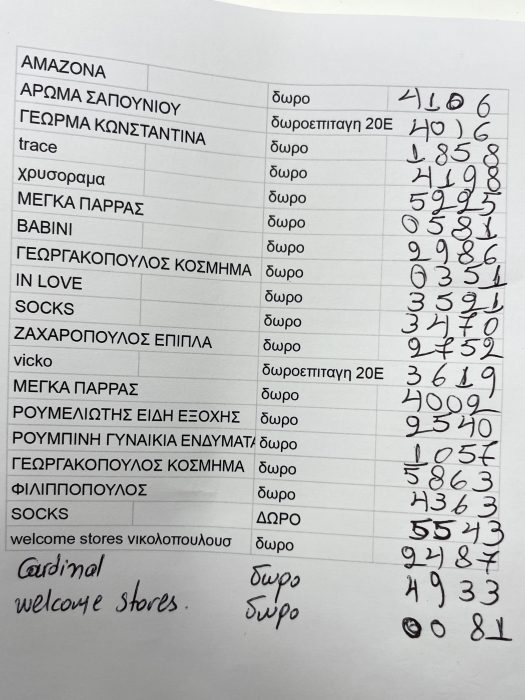 AMAZONA δωρο 4106
ΑΡΩΜΑ ΣΑΠΟΥΝΙΟΥ δωροεπιταγη 20Ε 4016
ΓΕΩΡΜΑ ΚΩΝΣΤΑΝΤΙΝΑ δωρο 1858
trace δωρο 4198
χρυσοραμα δωρο 5225
ΜΕΓΚΑ ΠΑΡΡΑΣ δωρο 0581
BABINI δωρο 2986
ΓΕΩΡΓΑΚΟΠΟΥΛΟΣ ΚΟΣΜΗΜΑ δωρο 0351
IN LOVE δωρο 3521
SOCKS δωρο 3470
ΖΑΧΑΡΟΠΟΥΛΟΣ ΕΠΙΠΛΑ δωρο 2752
vicko δωροεπιταγη 20Ε 3619
ΜΕΓΚΑ ΠΑΡΡΑΣ δωρο 4002
ΡΟΥΜΕΛΙΩΤΗΣ ΕΙΔΗ ΕΞΟΧΗΣ δωρο 2540
ΡΟΥΜΠΙΝΗ ΓΥΝΑΙΚΙΑ ΕΝΔΥΜΑΤΑ δωρο 1057
ΓΕΩΡΓΑΚΟΠΟΥΛΟΣ ΚΟΣΜΗΜΑ δωρο 5863
ΦΙΛΙΠΠΟΠΟΥΛΟΣ δωρο 4363
SOCKS ΔΩΡΟ 5543
welcome stores νικολοπουλουσ δωρο 2487
Cardinal δωρο 4933
welcome stores. δωρο 0081